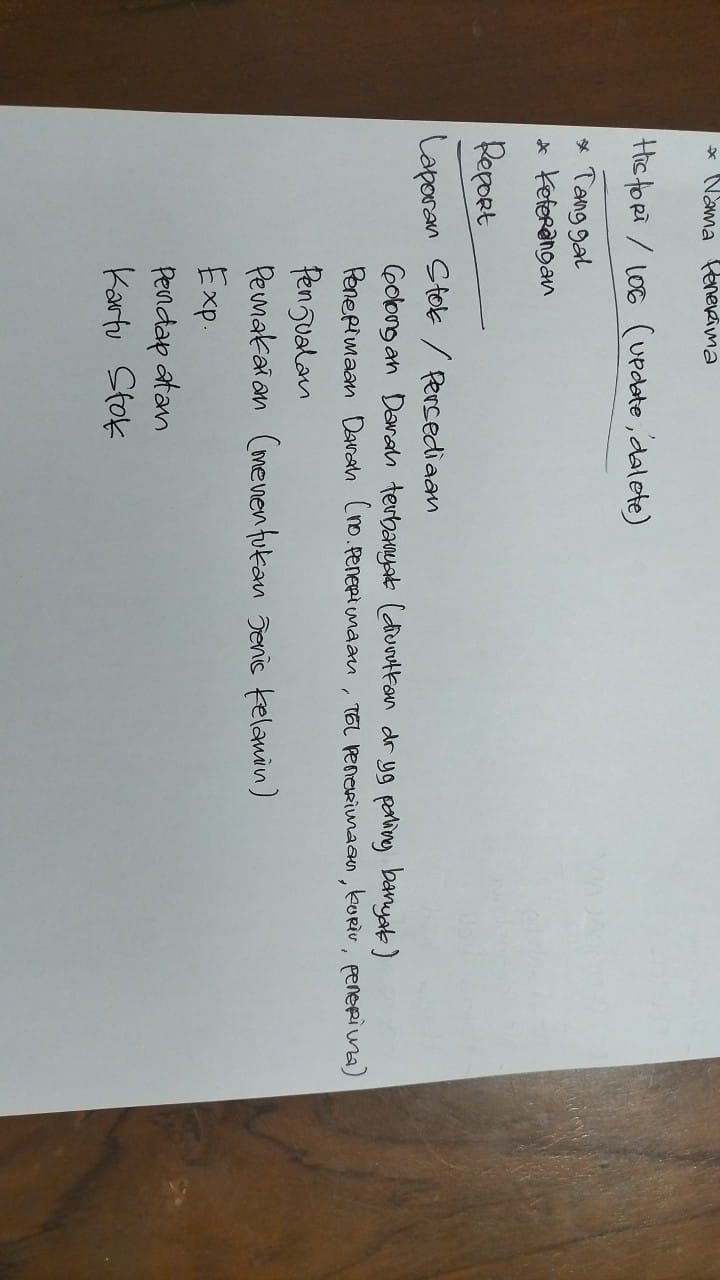 * Nama Penerima
Histori / LOG (update, dalete)
* Tanggal
* Keterangan
Report
Laporan Stok / Persediaan
Golongan Darah terbanyak (diurutkan dr yg paling banyak)
Penerimaan Darah (no. penerimaan, TGL penerimaan, kurir, penerima)
Penjualan
Pemakaian (menentukan jenis kelamin)
Exp.
Pendapatan
Kartu Stok